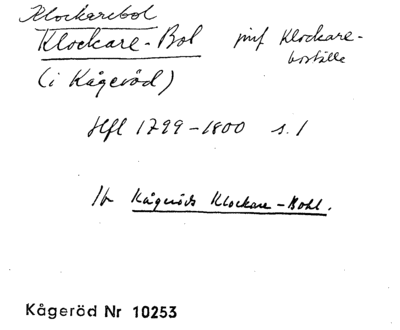 Klockarebol
Klockare-Bol jmf Klockare-
boställe
(i Kågeröd)
Hfl 1799-1800 s. 1
Kågeröds Klockare-Bohl.
Kågeröd Nr 10253